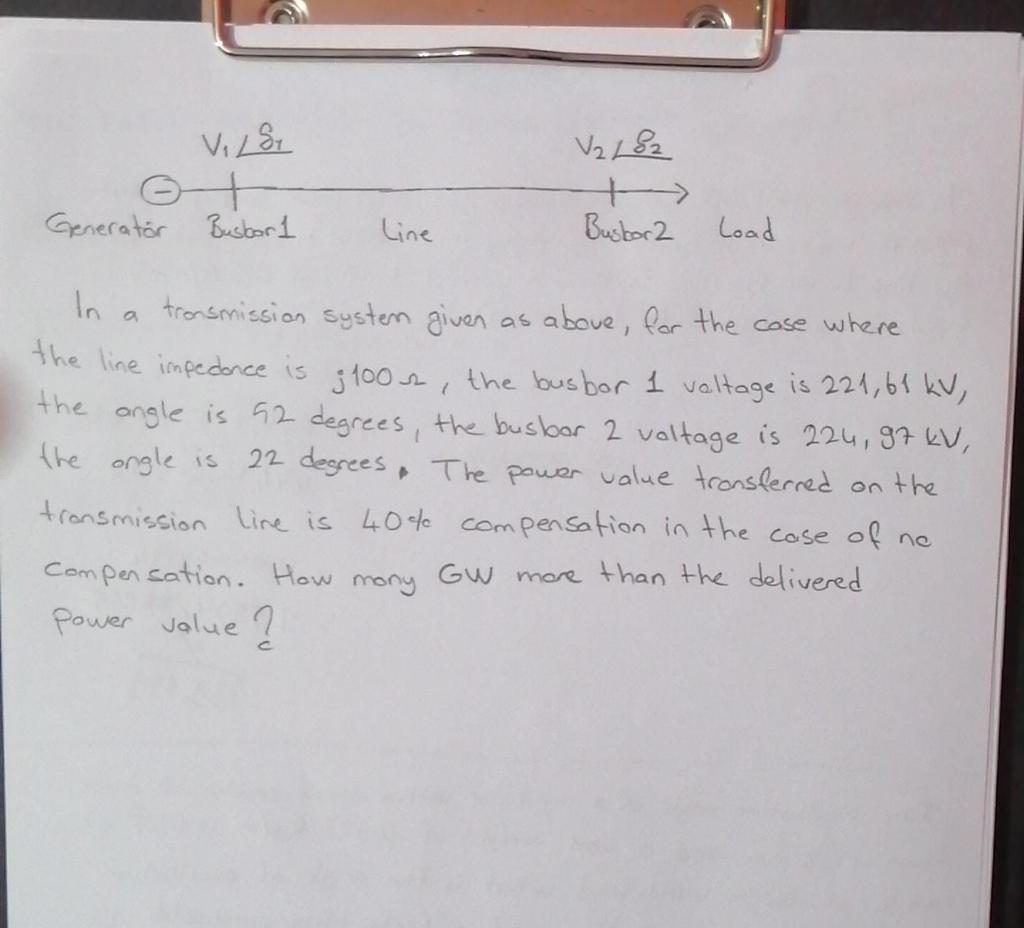 V₁∠δ₁ V₂∠δ₂
Generatör Busbar1 Line Busbar2 Load
In a transmission system given as above, for the case where
the line impedance is j100 Ω, the busbar 1 voltage is 221,61 kV,
the angle is 52 degrees, the busbar 2 voltage is 224,97 kV,
the angle is 22 degrees. The power value transferred on the
transmission line is 40% compensation in the case of no
compensation. How many GW more than the delivered
power value?